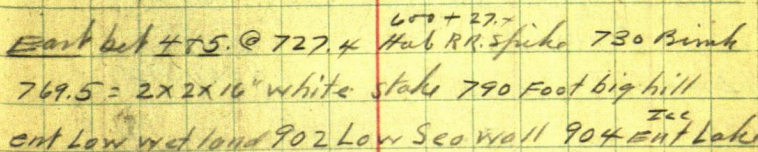 600 + 27.4
East bet 4+5. @ 727.4 Hub RR. Spike 730 Bink
769.5 = 2x2x16" white stake 790 Foot big hill
Ice
ent Low wet land 902 Low Sea wall 904 Ent Lake